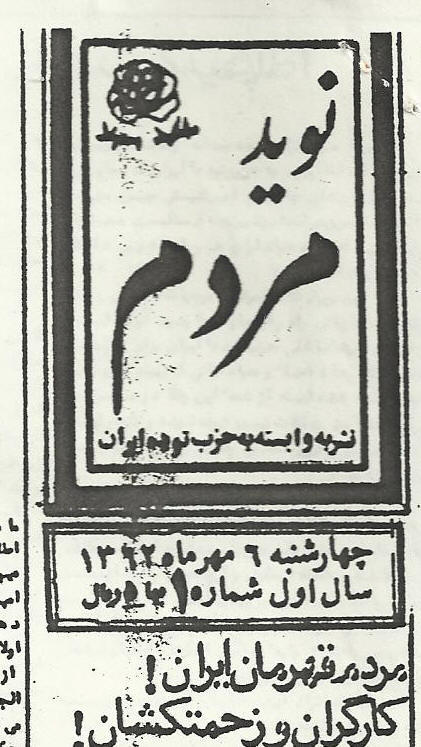 نوید
مردم
نشریه وابسته به حزب توده ایران
چهارشنبه ۶ مهر ماه ۱۳۶۲
سال اول شماره ۱ بها ۵ ریال
مردم قهرمان ایران!
کارگران و زحمتکشان!